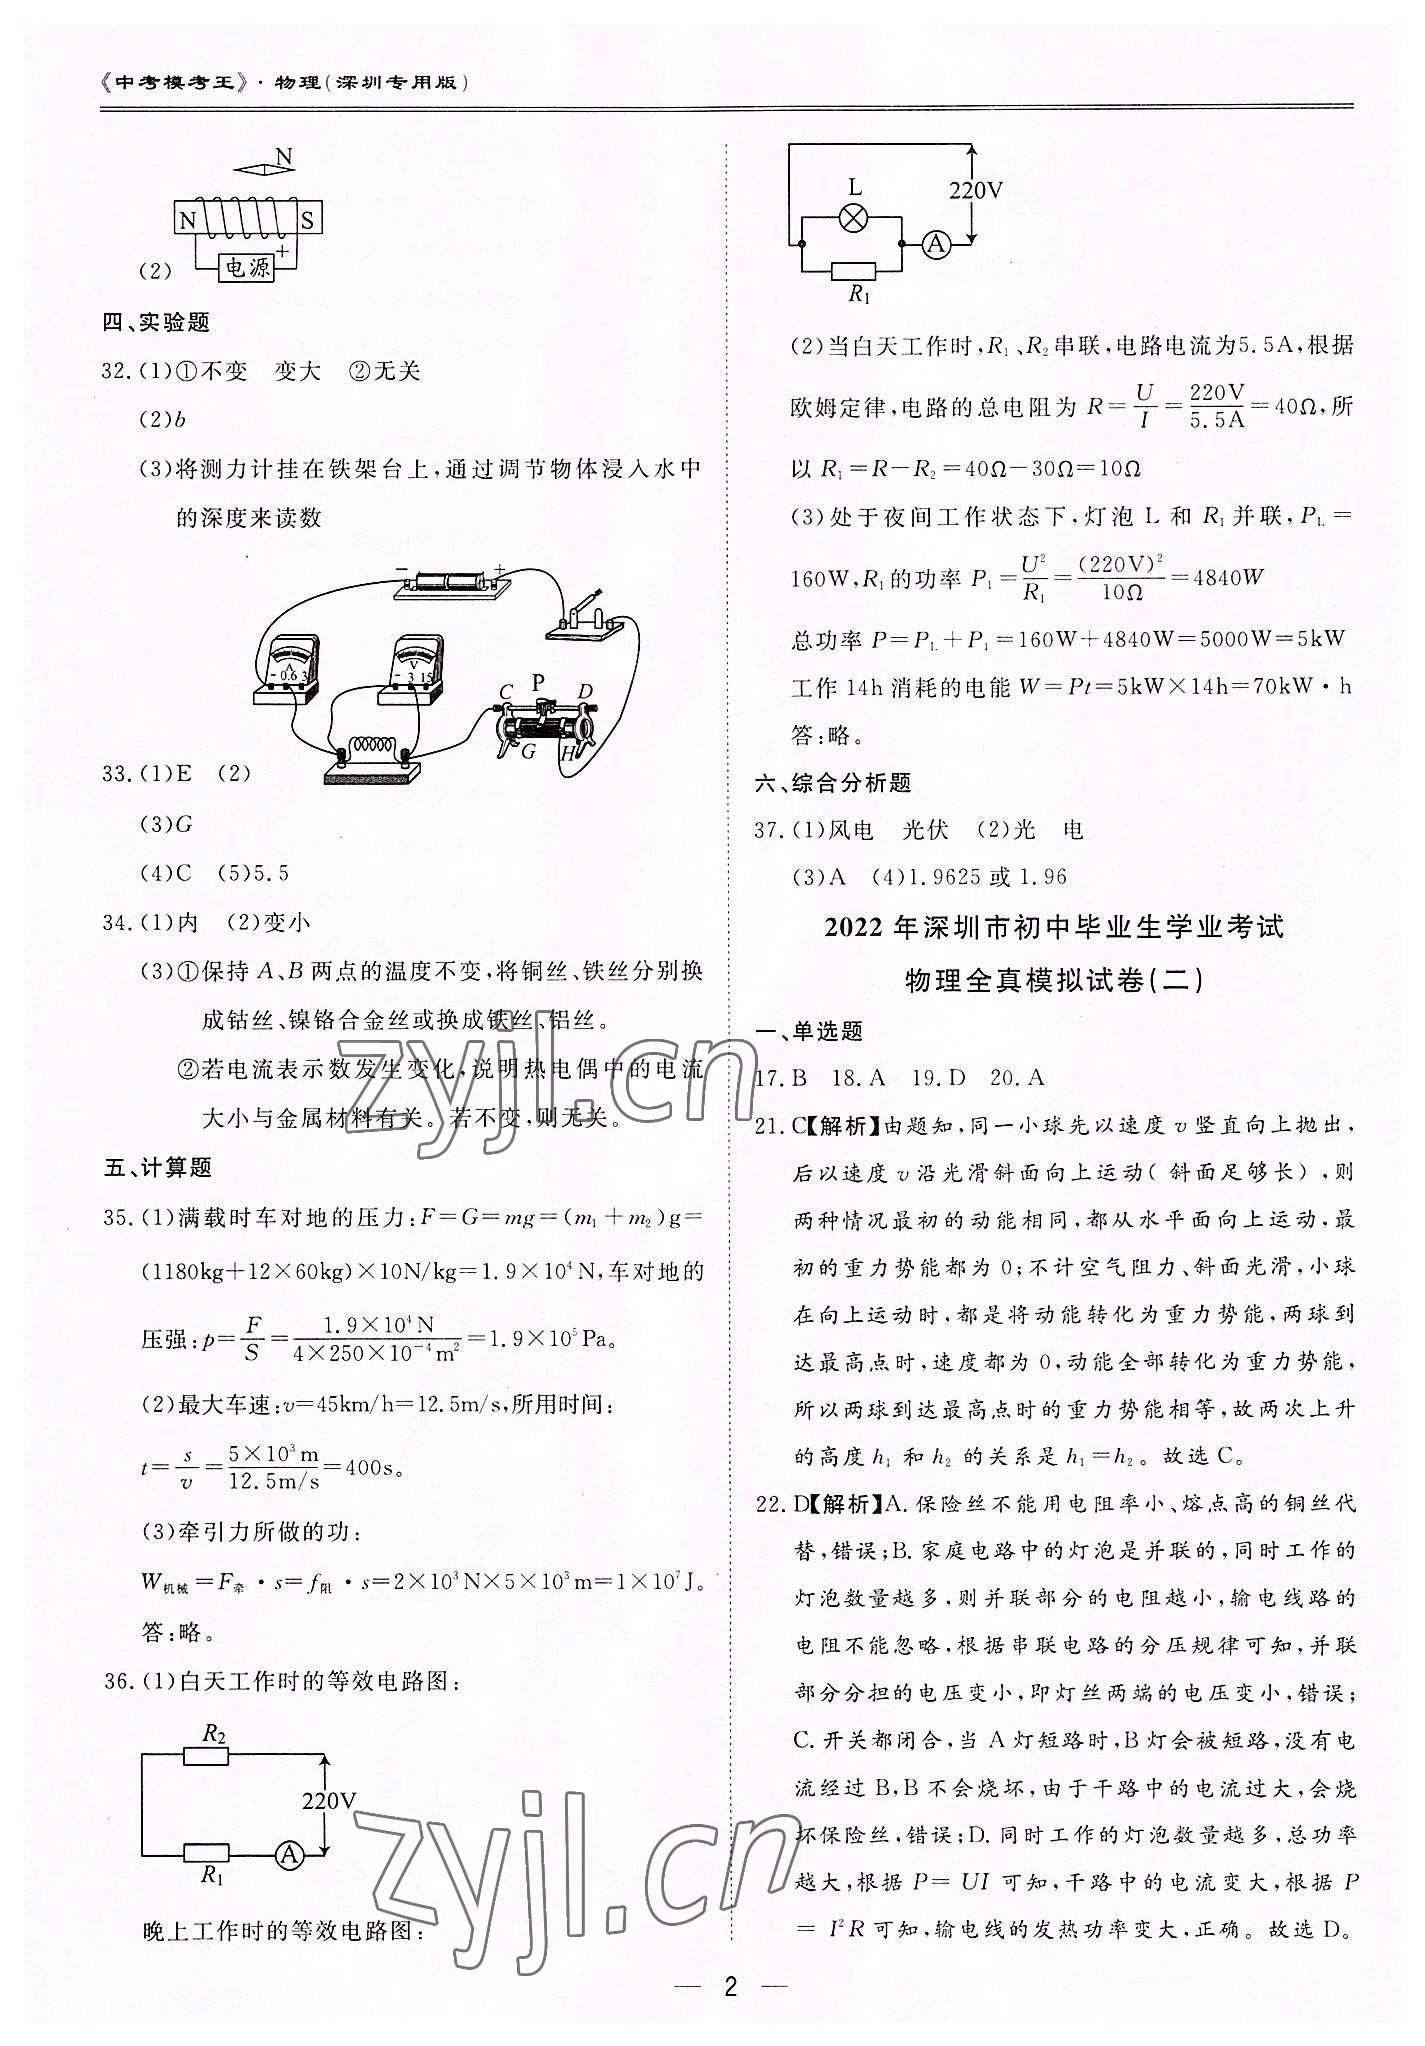 《中考模考王》·物理(深圳专用版)
N
N S
+
(2) 电源
四、实验题
32.(1)①不变 变大 ②无关
(2)b
(3)将测力计挂在铁架台上,通过调节物体浸入水中
的深度来读数
− +
A
- 0.6 3
V
- 3 15
C P D
G H
33.(1)E (2)
(3)G
(4)C (5)5.5
34.(1)内 (2)变小
(3)①保持 A、B 两点的温度不变,将铜丝、铁丝分别换
成钴丝、镍铬合金丝或换成铁丝、铝丝。
②若电流表示数发生变化,说明热电偶中的电流
大小与金属材料有关。若不变,则无关。
五、计算题
35.(1)满载时车对地的压力:F=G=mg=(m₁+m₂)g=
(1180kg+12×60kg)×10N/kg=1.9×10⁴N,车对地的
压强:p=F/S=1.9×10⁴N/4×250×10⁻⁴m²=1.9×10⁵Pa。
(2)最大车速:v=45km/h=12.5m/s,所用时间:
t=s/v=5×10³m/12.5m/s=400s。
(3)牵引力所做的功:
W机械=F牵·s=f阻·s=2×10³N×5×10³m=1×10⁷J。
答:略。
36.(1)白天工作时的等效电路图:
R₂
220V
R₁ A
晚上工作时的等效电路图:
220V
L
A
R₁
(2)当白天工作时,R₁、R₂串联,电路电流为5.5A,根据
欧姆定律,电路的总电阻为 R=U/I=220V/5.5A=40Ω,所
以 R₁=R−R₂=40Ω−30Ω=10Ω
(3)处于夜间工作状态下,灯泡 L 和 R₁并联,P_L=
160W,R₁的功率 P₁=U²/R₁=(220V)²/10Ω=4840W
总功率 P=P_L+P₁=160W+4840W=5000W=5kW
工作 14h 消耗的电能 W=Pt=5kW×14h=70kW·h
答:略。
六、综合分析题
37.(1)风电 光伏 (2)光 电
(3)A (4)1.9625或1.96
2022年深圳市初中毕业生学业考试
物理全真模拟试卷(二)
一、单选题
17.B 18.A 19.D 20.A
21.C【解析】由题知,同一小球先以速度 v 竖直向上抛出,
后以速度 v 沿光滑斜面向上运动( 斜面足够长),则
两种情况最初的动能相同,都从水平面向上运动,最
初的重力势能都为 0;不计空气阻力、斜面光滑,小球
在向上运动时,都是将动能转化为重力势能,两球到
达最高点时,速度都为 0,动能全部转化为重力势能,
所以两球到达最高点时的重力势能相等,故两次上升
的高度 h₁ 和 h₂ 的关系是 h₁=h₂。故选C。
22.D【解析】A.保险丝不能用电阻率小、熔点高的铜丝代
替,错误;B.家庭电路中的灯泡是并联的,同时工作的
灯泡数量越多,则并联部分的电阻越小,输电线路的
电阻不能忽略,根据串联电路的分压规律可知,并联
部分分担的电压变小,即灯丝两端的电压变小,错误;
C.开关都闭合,当 A 灯短路时,B灯会被短路,没有电
流经过 B,B不会烧坏,由于干路中的电流过大,会烧
坏保险丝,错误;D.同时工作的灯泡数量越多,总功率
越大,根据 P= UI 可知,干路中的电流变大,根据 P
= I²R 可知,输电线的发热功率变大,正确。故选 D。
zyjl.cn
zyjl.cn
— 2 —